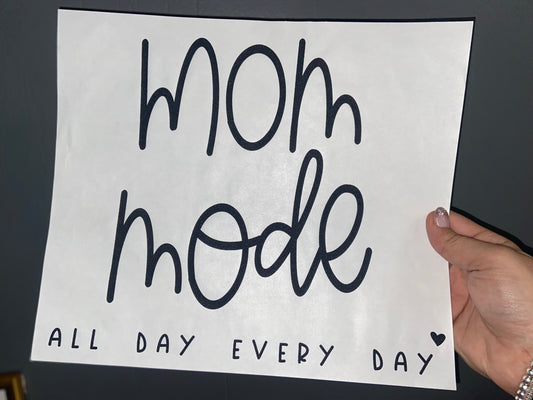 mom
mode
ALL DAY EVERY DAY